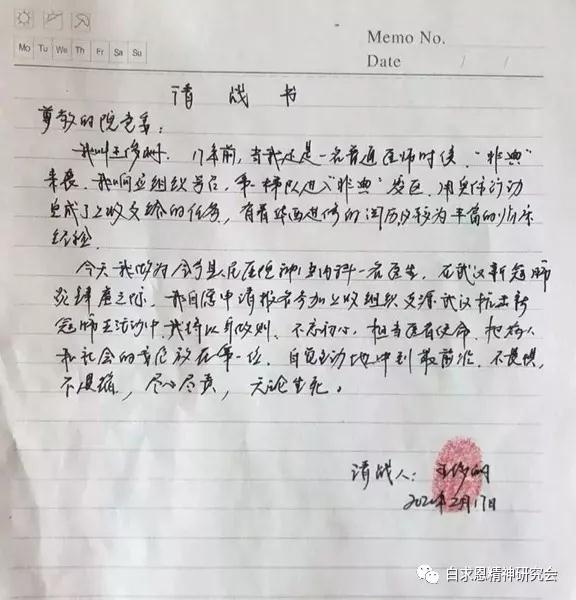 Memo No.
Mo Tu We Th Fr Sa Su
Date / /
请战书
尊敬的院党委:
我叫王 17年前,当我还是一名普通医师时候,“非典”
来袭,我响应组织号召,第一梯队进入“非典”发区,用实际行动
完成了上级交给的任务,有着华西进修的阅历及较为丰富的临床
经验。
今天我做为 县人民医院神内科一名医生,在武汉新冠肺
炎肆虐之际,我自愿申请报名参加上级组织支援武汉抗击新
冠肺炎活动中,我将以身 则,不忘初心,担当医者使命,把病人
和社会的责任放在第一位,自觉主动地冲到最前沿,不畏惧,
不退缩,尽心尽责,无论生死。
请战人:王
2020年2月17日
白求恩精神研究会